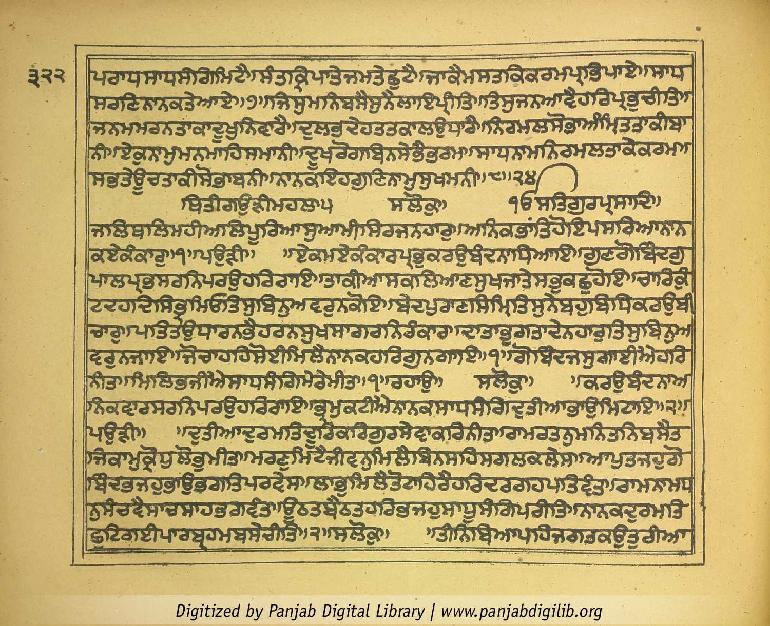 ੩੨੨
ਪਰਾਧਸਾਧਸੰਗਿਮਿਟੈ॥ਸੰਤਕ੍ਰਿਪਾਤੇਜਮਤੇਛੁਟੈ॥ਜਾਕੈਮਸਤਕਿਕਰਮਪ੍ਰਭਿਪਾਏ॥ਸਾਧ
ਸਰਣਿਨਾਨਕਤੇਆਏ॥੭॥ਜਿਸੁਮਨਿਬਸੈਸੁਨੈਲਾਇਪ੍ਰੀਤਿ॥ਤਿਸੁਜਨਆਵੈਹਰਿਪ੍ਰਭੁਚੀਤਿ॥
ਜਨਮਮਰਨਤਾਕਾਦੂਖੁਨਿਵਾਰੈ॥ਦੁਲਭਦੇਹਤਤਕਾਲਉਧਾਰੈ॥ਨਿਰਮਲਸੋਭਾਅੰਮ੍ਰਿਤਤਾਕੀਬਾ
ਨੀ॥ਏਕੁਨਾਮੁਮਨਮਾਹਿਸਮਾਨੀ॥ਦੂਖਰੋਗਬਿਨਸੇਭੈਭਰਮ॥ਸਾਧਨਾਮਨਿਰਮਲਤਾਕੇਕਰਮ॥
ਸਭਤੇਊਚਤਾਕੀਸੋਭਾਬਨੀ॥ਨਾਨਕਇਹਗੁਣਿਨਾਮੁਸੁਖਮਨੀ॥੮॥੨੪॥
ਥਿਤੀਗਉੜੀਮਹਲਾ੫ ਸਲੋਕੁ॥ ੴਸਤਿਗੁਰਪ੍ਰਸਾਦਿ॥
ਜਲਿਥਲਿਮਹੀਅਲਿਪੂਰਿਆਸੁਆਮੀਸਿਰਜਨਹਾਰੁ॥ਅਨਿਕਭਾਂਤਿਹੋਇਪਸਰਿਆਨਾਨ
ਕਏਕੰਕਾਰੁ॥੧॥ਪਉੜੀ॥ ॥ਏਕਮਏਕੰਕਾਰੁਪ੍ਰਭੁਕਰਉਬੰਦਨਾਧਿਆਇ॥ਗੁਣਗੋਬਿੰਦਗੁ
ਪਾਲਪ੍ਰਭਸਰਨਿਪਰਉਹਰਿਰਾਇ॥ਤਾਕੀਆਸਕਲਿਆਣਸੁਖਜਾਤੇਸਭੁਕਛੁਹੋਇ॥ਚਾਰਿਕੁੰ
ਟਦਹਦਿਸਿਭ੍ਰਮਿਓਤਿਸੁਬਿਨੁਅਵਰੁਨਕੋਇ॥ਬੇਦਪੁਰਾਣਸਿਮ੍ਰਿਤਿਸੁਨੇਬਹੁਬਿਧਿਕਰਉਬੀ
ਚਾਰੁ॥ਪਤਿਤਉਧਾਰਨਭੈਹਰਨਸੁਖਸਾਗਰਨਿਰੰਕਾਰ॥ਦਾਤਾਭੁਗਤਾਦੇਨਹਾਰੁਤਿਸੁਬਿਨੁਅ
ਵਰੁਨਜਾਇ॥ਜੋਚਾਹਹਿਸੋਈਮਿਲੈਨਾਨਕਹਰਿਗੁਨਗਾਇ॥੧॥ਗੋਬਿੰਦਜਸੁਗਾਈਐਹਰਿ
ਨੀਤ॥ਮਿਲਿਭਜੀਐਸਾਧਸੰਗਿਮੇਰੇਮੀਤ॥੧॥ਰਹਾਉ॥ ਸਲੋਕੁ॥ ॥ਕਰਉਬੰਦਨਾਅ
ਨਿਕਵਾਰਸਰਨਿਪਰਉਹਰਿਰਾਇ॥ਭ੍ਰਮੁਕਟੀਐਨਾਨਕਸਾਧਸੰਗਿਦੁਤੀਆਭਾਉਮਿਟਾਇ॥੨॥
ਪਉੜੀ॥ ॥ਦੁਤੀਆਦੁਰਮਤਿਦੂਰਿਕਰਿਗੁਰਸੇਵਾਕਰਿਨੀਤ॥ਰਾਮਰਤਨੁਮਨਿਤਨਿਬਸੈਤ
ਜਿਕਾਮੁਕ੍ਰੋਧੁਲੋਭੁਮੀਤ॥ਮਰਣੁਮਿਟੈਜੀਵਨੁਮਿਲੈਬਿਨਸਹਿਸਗਲਕਲੇਸ॥ਆਪੁਤਜਹੁਗੋ
ਬਿੰਦਭਜਹੁਭਾਉਭਗਤਿਪਰਵੇਸ॥ਲਾਭੁਮਿਲੈਤੋਟਾਹਿਰੈਹਰਿਦਰਗਹਪਤਿਵੰਤ॥ਰਾਮਨਾਮਧ
ਨੁਸੰਚਵੈਸਾਚਸਾਹਭਗਵੰਤ॥ਊਠਤਬੈਠਤਹਰਿਭਜਹੁਸਾਧੂਸੰਗਿਪਰੀਤਿ॥ਨਾਨਕਦੁਰਮਤਿ
ਛੁਟਿਗਈਪਾਰਬ੍ਰਹਮਬਸੇਚੀਤਿ॥੨॥ਸਲੋਕੁ॥ ॥ਤੀਨਿਬਿਆਪਹਿਜਗਤਕਉਤੁਰੀਆ
Digitized by Panjab Digital Library | www.panjabdigilib.org